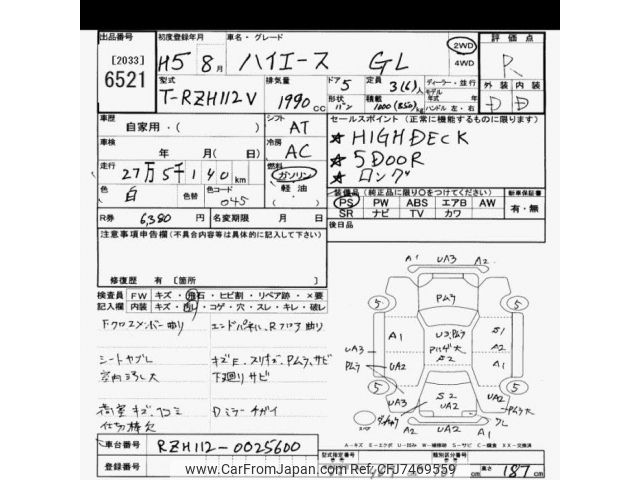 出品番号
[2033]
6521
初度登録年月
H5 年 8 月
車名・グレード
ハイエース GL
2WD
4WD
評価点
R
型式
T-RZH112V
排気量
1990 cc
ドア 5
形状 バン
定員 3(6)人
積載
ディーラー・並行
モデル
年式 年
ハンドル 左・右
外装 内装
D D
車歴
自家用・( )
シフト
AT
車検
年 月( 日)
冷房
AC
走行
27万5千140 km
燃料
ガソリン
軽油
色
白
色コード
045
R券
6,380 円
名変期限 月 日
セールスポイント (正常に機能するものに限ります)
★ HIGH DECK
★ 5DOOR
★ ロング
装備品(純正品に限り○をつけてください)
新車保証書
PS PW ABS エアB AW
SR ナビ TV カワ
有・無
後日品
注意事項申告欄(不具合内容等は具体的に記入して下さい)
修復歴 有 [箇所
検査員 FW キズ・飛石・ヒビ割・リペア跡・×要
記入欄 内装 キズ・汚レ・コゲ・穴・スレ・キレ・破レ
Fクロスメンバー曲り
エンドパネル、Rフロア曲り
シートヤブレ
キズE、スリキズ、Pムラ、サビ
室内ヨゴレ大
下廻リサビ
荷室キズ、ヘコミ
Dミラーチガイ
仕切棒欠
A1 UA3 A2
Pムラ
5 5
A1
U3、Pムラ
S2
S1
A2
UA3
Pムラ
UA2
A1
UA2
5 5
S2
UA2
Pムラ大
スペア
A2 UA2 A1
A-キズ E-エクボ U-凹み W-補修跡 S-サビ C-腐食 XX-交換済
車台番号
RZH112-0025600
登録番号
型式指定番号
類別区分番号
高さ 187 cm
www.CarFromJapan.com Ref:CFJ7469559